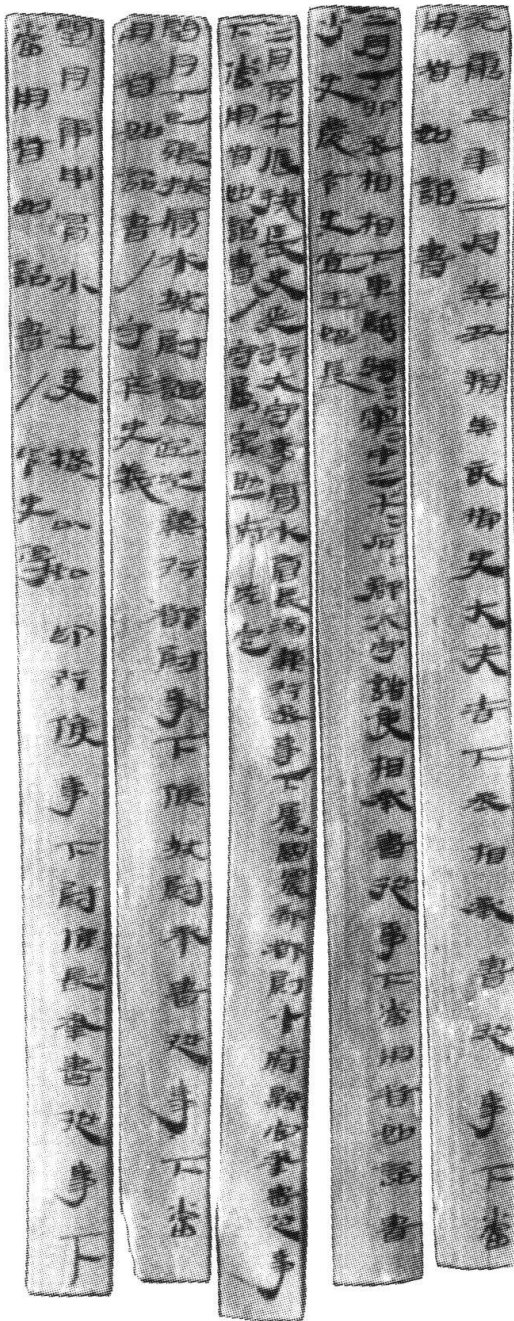 元康五年二月癸丑朔癸亥御史大夫吉下丞相承書從事下當
用者如詔書
二月丁卯丞相相下車騎將=軍=中=二=千=石=郡大守諸侯相承書從事下當用者如詔書
少史慶令史宜王始長
三月丙午張掖長史延行大守事肩水倉長湯兼行丞事下屬國農部都尉小府縣官承書從事
下當用者如詔書/守屬宗助府佐定
閏月丁巳張掖肩水城尉誼以近次兼行都尉事下候城尉承書從事下當
用者如詔書/守卒史義
閏月庚申肩水士吏橫以私印行候事下尉候長承書從事下
當用者如詔書/令史得